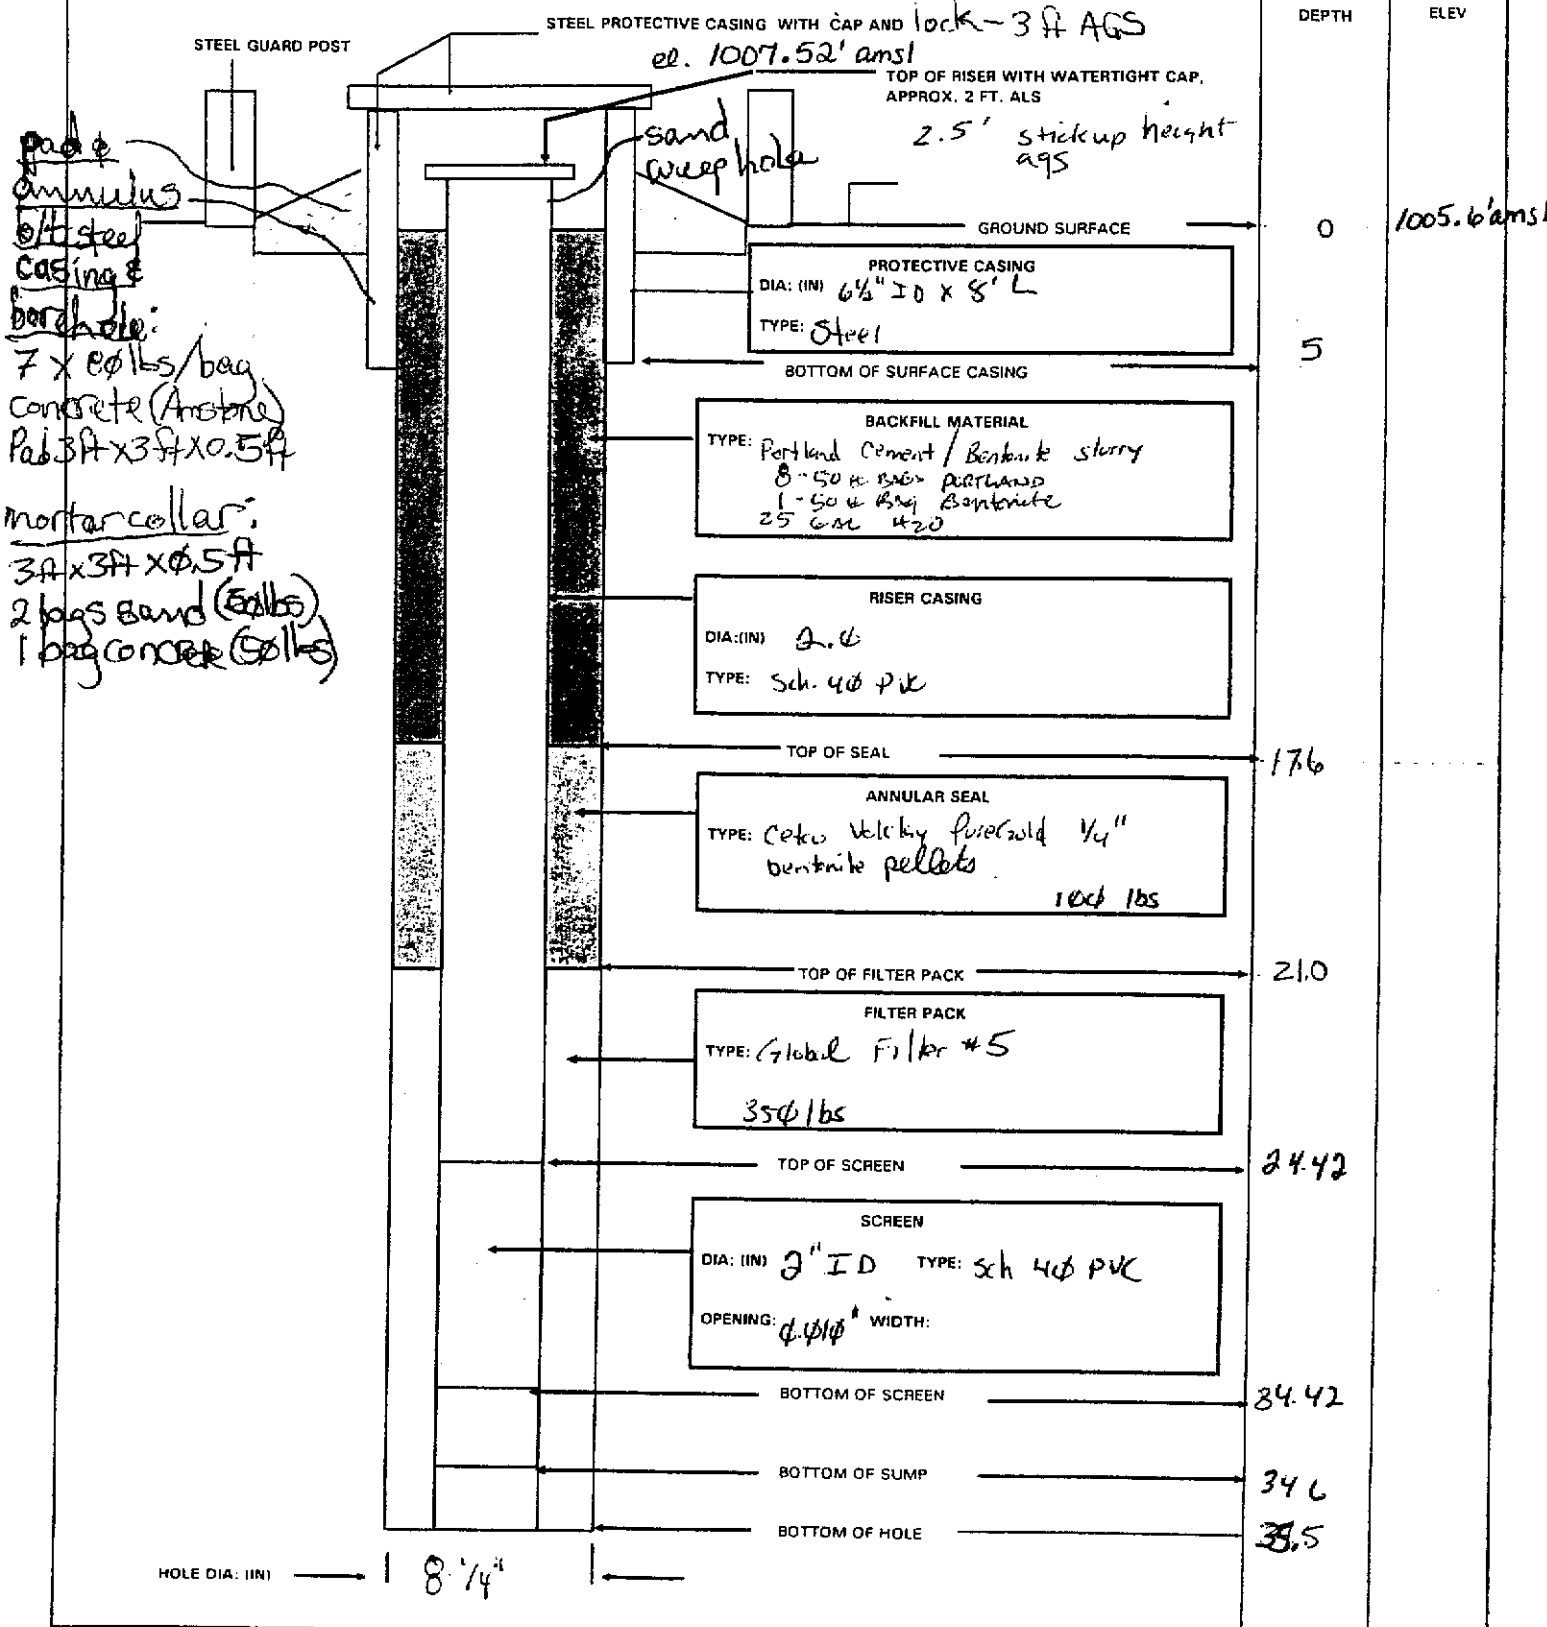 DEPTH
ELEV
STEEL PROTECTIVE CASING WITH CAP AND lock - 3 ft AGS
el. 1007.52' amsl
STEEL GUARD POST
TOP OF RISER WITH WATERTIGHT CAP,
APPROX. 2 FT. ALS
2.5' stickup height
ags
sand
weephole
pad &
annulus
b/t steel
casing &
borehole:
7 X 80 lbs/bag
concrete (Amstone)
Pad 3ft X 3ft X 0.5ft
mortar collar:
3ft x 3ft X 0.5ft
2 bags sand (50lbs)
1 bag concrete (50lbs)
GROUND SURFACE
0
1005.6' amsl
PROTECTIVE CASING
DIA: (IN) 6½" ID X 8' L
TYPE: Steel
BOTTOM OF SURFACE CASING
5
BACKFILL MATERIAL
TYPE: Portland Cement / Bentonite slurry
8 - 50 # BAGS PORTLAND
1 - 50 # Bag Bentonite
25 GAL H20
RISER CASING
DIA:(IN) 2.0
TYPE: Sch. 40 PVC
TOP OF SEAL
17.6
ANNULAR SEAL
TYPE: Cetco PureGold 1/4"
bentonite pellets
100 lbs
TOP OF FILTER PACK
21.0
FILTER PACK
TYPE: Global Filter #5
350 lbs
TOP OF SCREEN
24.42
SCREEN
DIA: (IN) 2" ID TYPE: Sch 40 PVC
OPENING: 0.010" WIDTH:
BOTTOM OF SCREEN
34.42
BOTTOM OF SUMP
34.6
BOTTOM OF HOLE
HOLE DIA: (IN)
8 1/4"